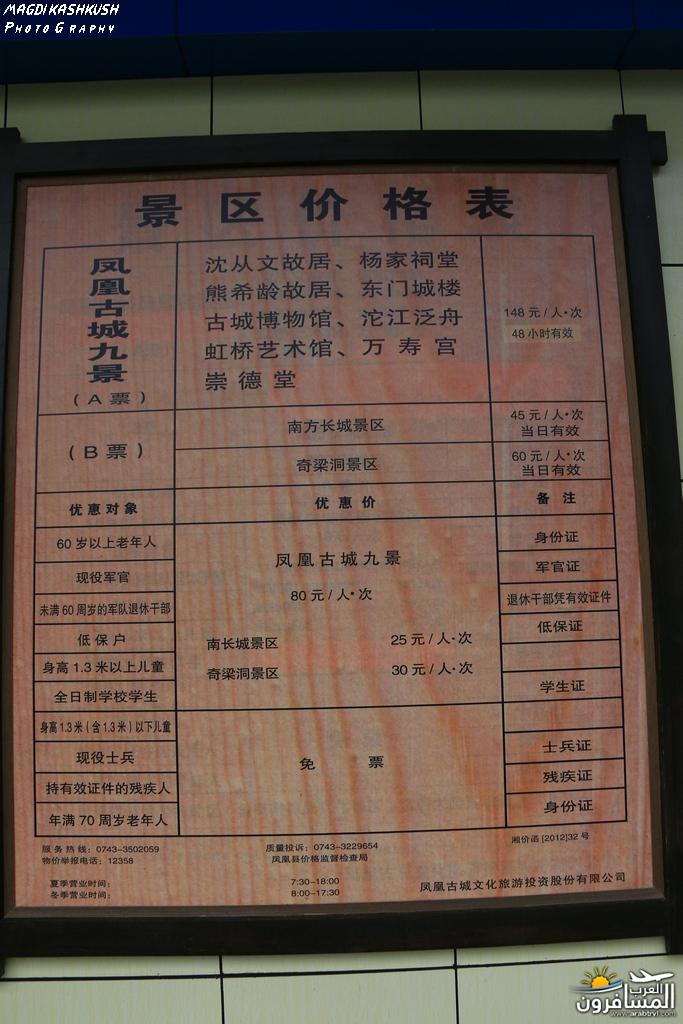 MAGDI KASHKUSH
PHOTOGRAPHY
景区价格表
凤凰古城九景
(A票)
沈从文故居、杨家祠堂
熊希龄故居、东门城楼
古城博物馆、沱江泛舟
虹桥艺术馆、万寿宫
崇德堂
148元/人·次
48小时有效
(B票)
南方长城景区
45元/人·次
当日有效
奇梁洞景区
60元/人·次
当日有效
优惠对象
优惠价
备注
60岁以上老年人
现役军官
未满60周岁的军队退休干部
低保户
身高1.3米以上儿童
全日制学校学生
凤凰古城九景
80元/人·次
南长城景区 25元/人·次
奇梁洞景区 30元/人·次
身份证
军官证
退休干部凭有效证件
低保证
学生证
身高1.3米(含1.3米)以下儿童
现役士兵
持有效证件的残疾人
年满70周岁老年人
免票
士兵证
残疾证
身份证
服务热线：0743-3502059
物价举报电话：12358
质量投诉：0743-3229654
凤凰县价格监督检查局
湘价函[2012]32号
夏季营业时间： 7:30-18:00
冬季营业时间： 8:00-17:30
凤凰古城文化旅游投资股份有限公司
العرب
المسافرون
www.arabtrvl.com